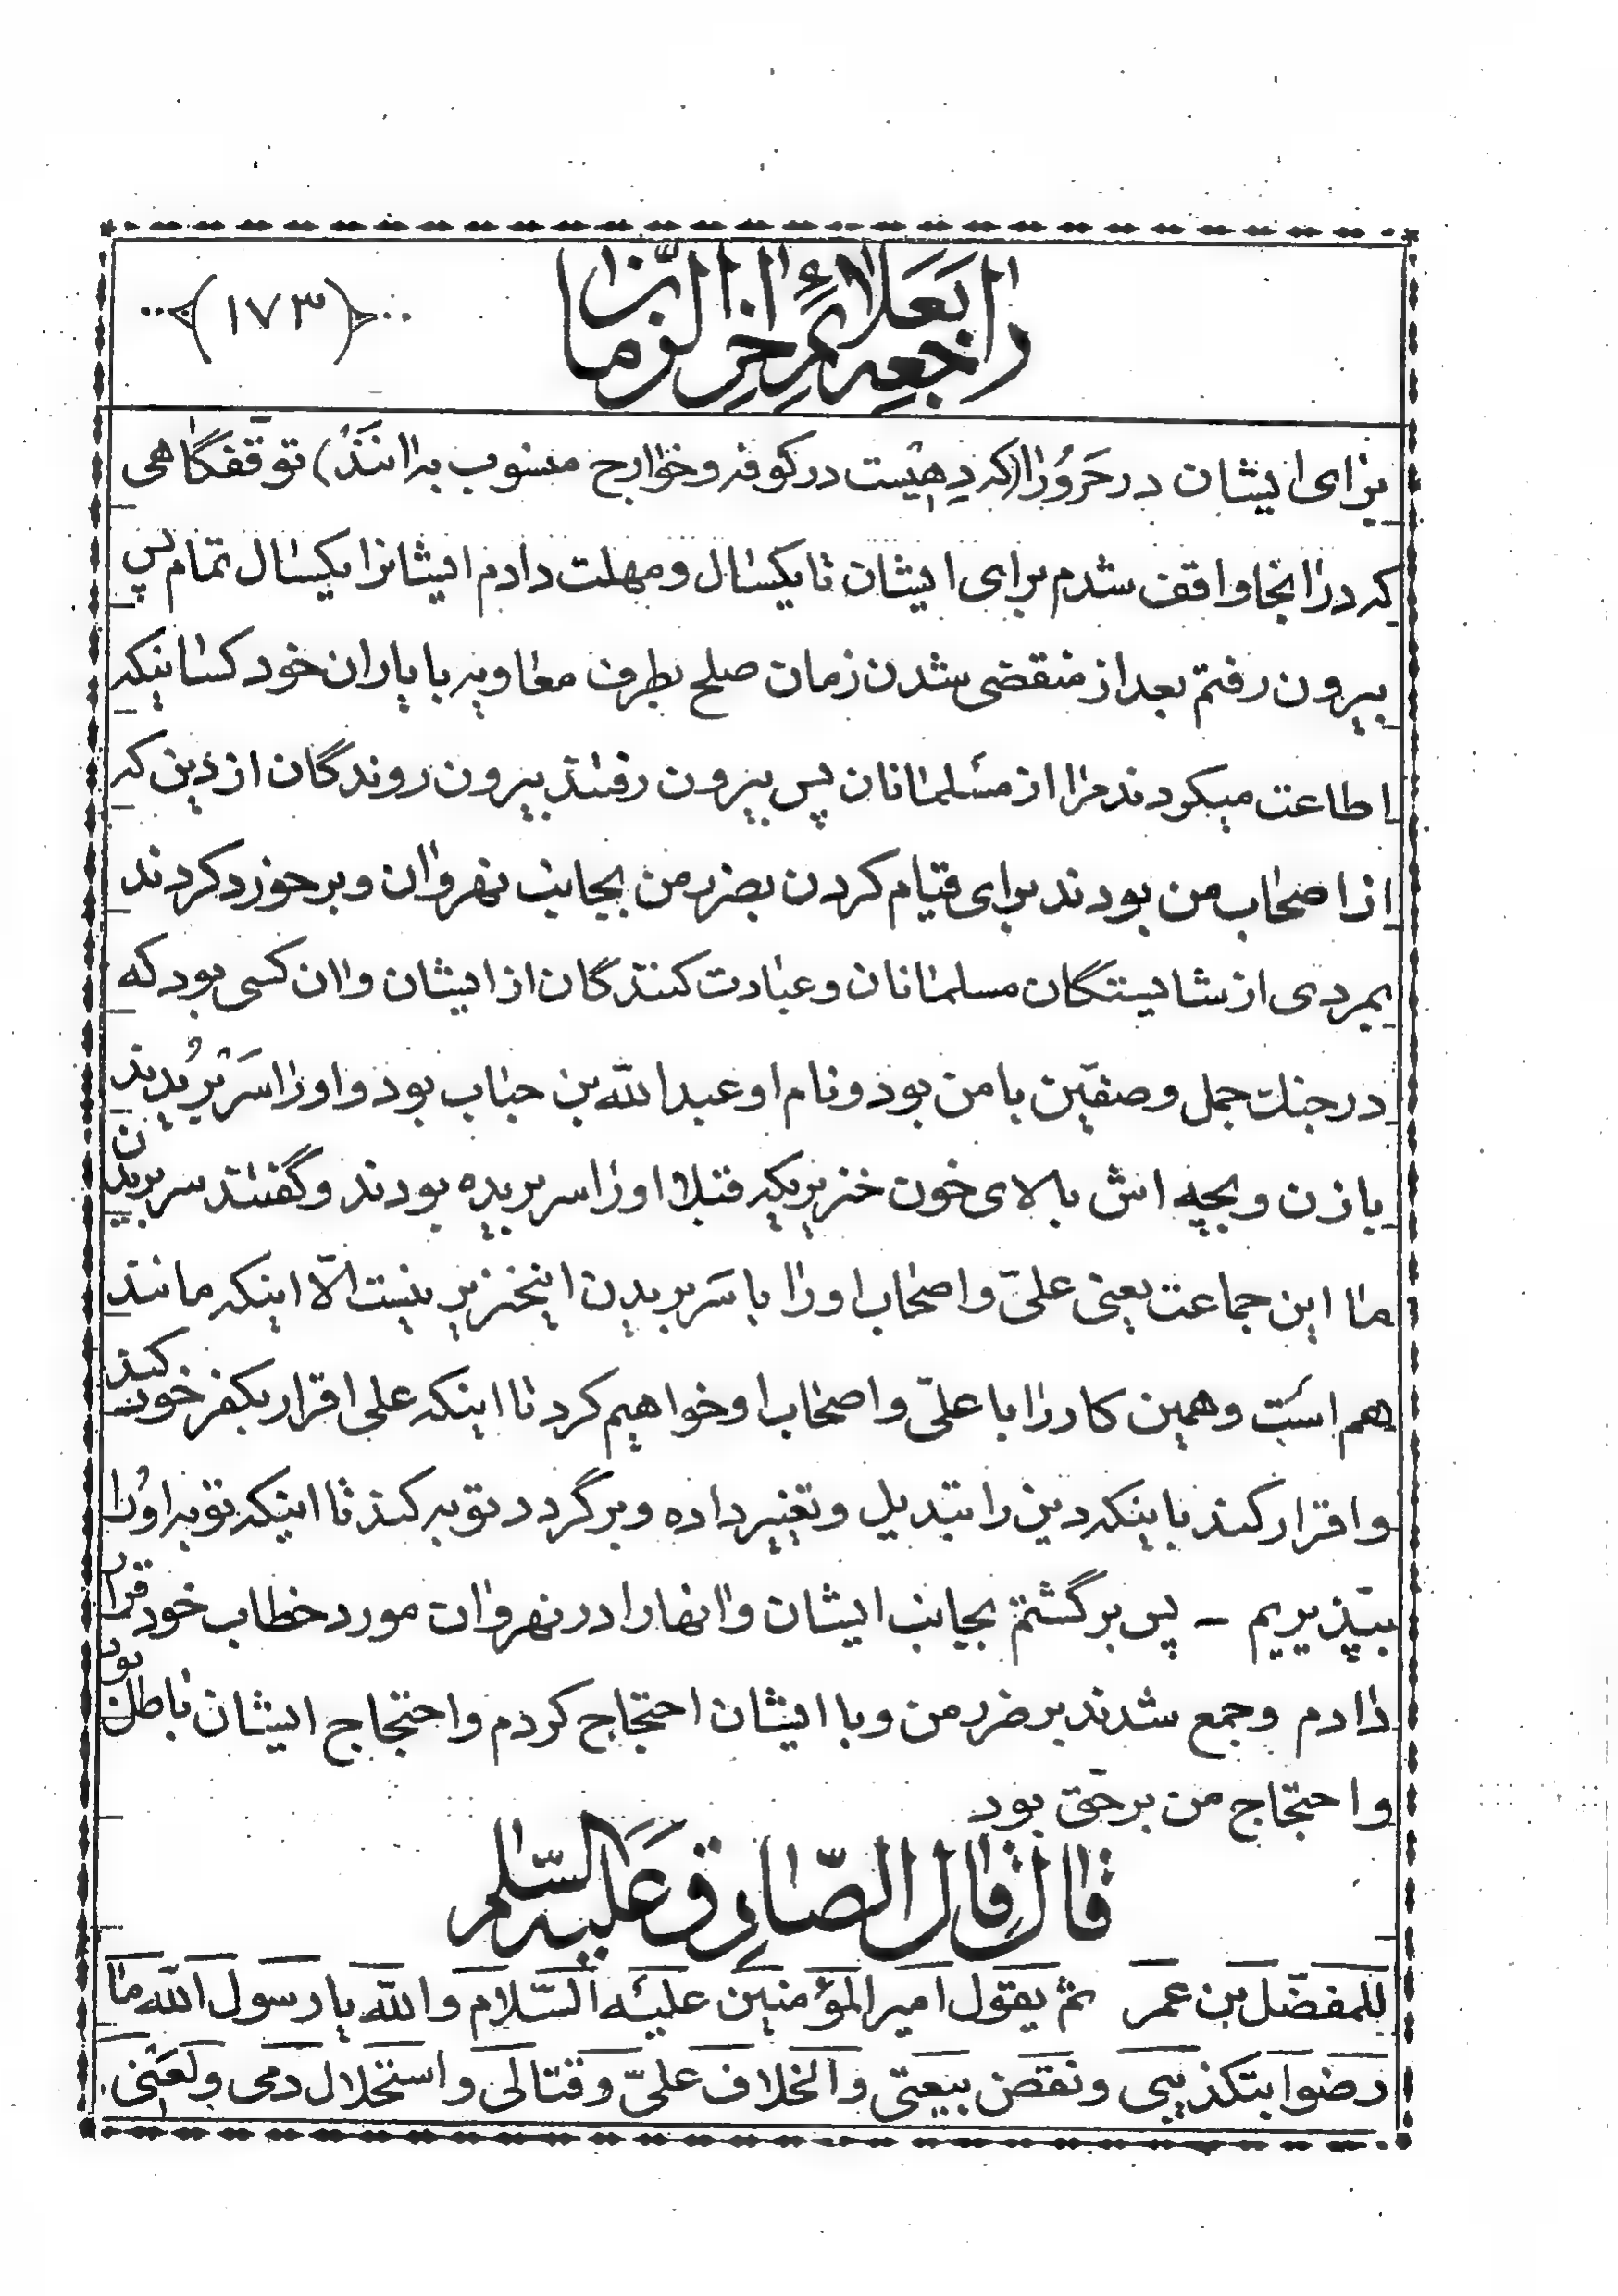 راجعه بعلائم اخر الزمان
(۱۷۳)
برای ایشان در حَرَوُرٰا (که دِهیست در کوفه و خوارج منسوب به انند) توقّفگاهی
که در انجا واقف شدم برای ایشان تا یکسال و مهلت دادم ایشانرا یکسال تمام پس
بیرون رفتم بعد از منقضی شدن زمان صلح بطرف معاویه با یاران خود کسانیکه
اطاعت میکردند مرا از مسلمانان پس بیرون رفتند بیرون روندگان از دین که
از اصحاب من بودند برای قیام کردن بضرر من بجانب نهروان و برخورد کردند
بمردی از شایستگان مسلمانان و عبادت کنندگان از ایشان و ان کسی بود که
در جنك جمل و صفین با من بود و نام او عبدالله بن خباب بود و او را سَر بُریدند
با زن و بچه اش بالای خون خنزیریکه قبلا او را سر بریده بودند و گفتند سر بریدن
ما این جماعت یعنی علیّ و اصحاب او را با سَر بریدن اینخنزیر نیست الّا اینکه مانند
هم است و همین کار را با علیّ و اصحاب او خواهیم کرد تا اینکه علی اقرار بکفر خود کند
و اقرار کند باینکه دین را تبدیل و تغییر داده و برگردد توبه کند تا اینکه توبه او را
بپذیریم ــ پس برگشتم بجانب ایشان و انها را در نهروان مورد خطاب خود قرار
دادم و جمع شدند بر ضرر من و با ایشان احتجاج کردم و احتجاج ایشان باطل بود
و احتجاج من بر حقّ بود
قال قال الصّادق علیه السّلم
للمفضّل بن عمر ثم یقول امیر المؤمنین علیه السّلام والله یا رسول الله ما
رضوا بتکذیبی و نقض بیعتی و الخلاف علیّ و قتالی و استحلال دمی و لعنی